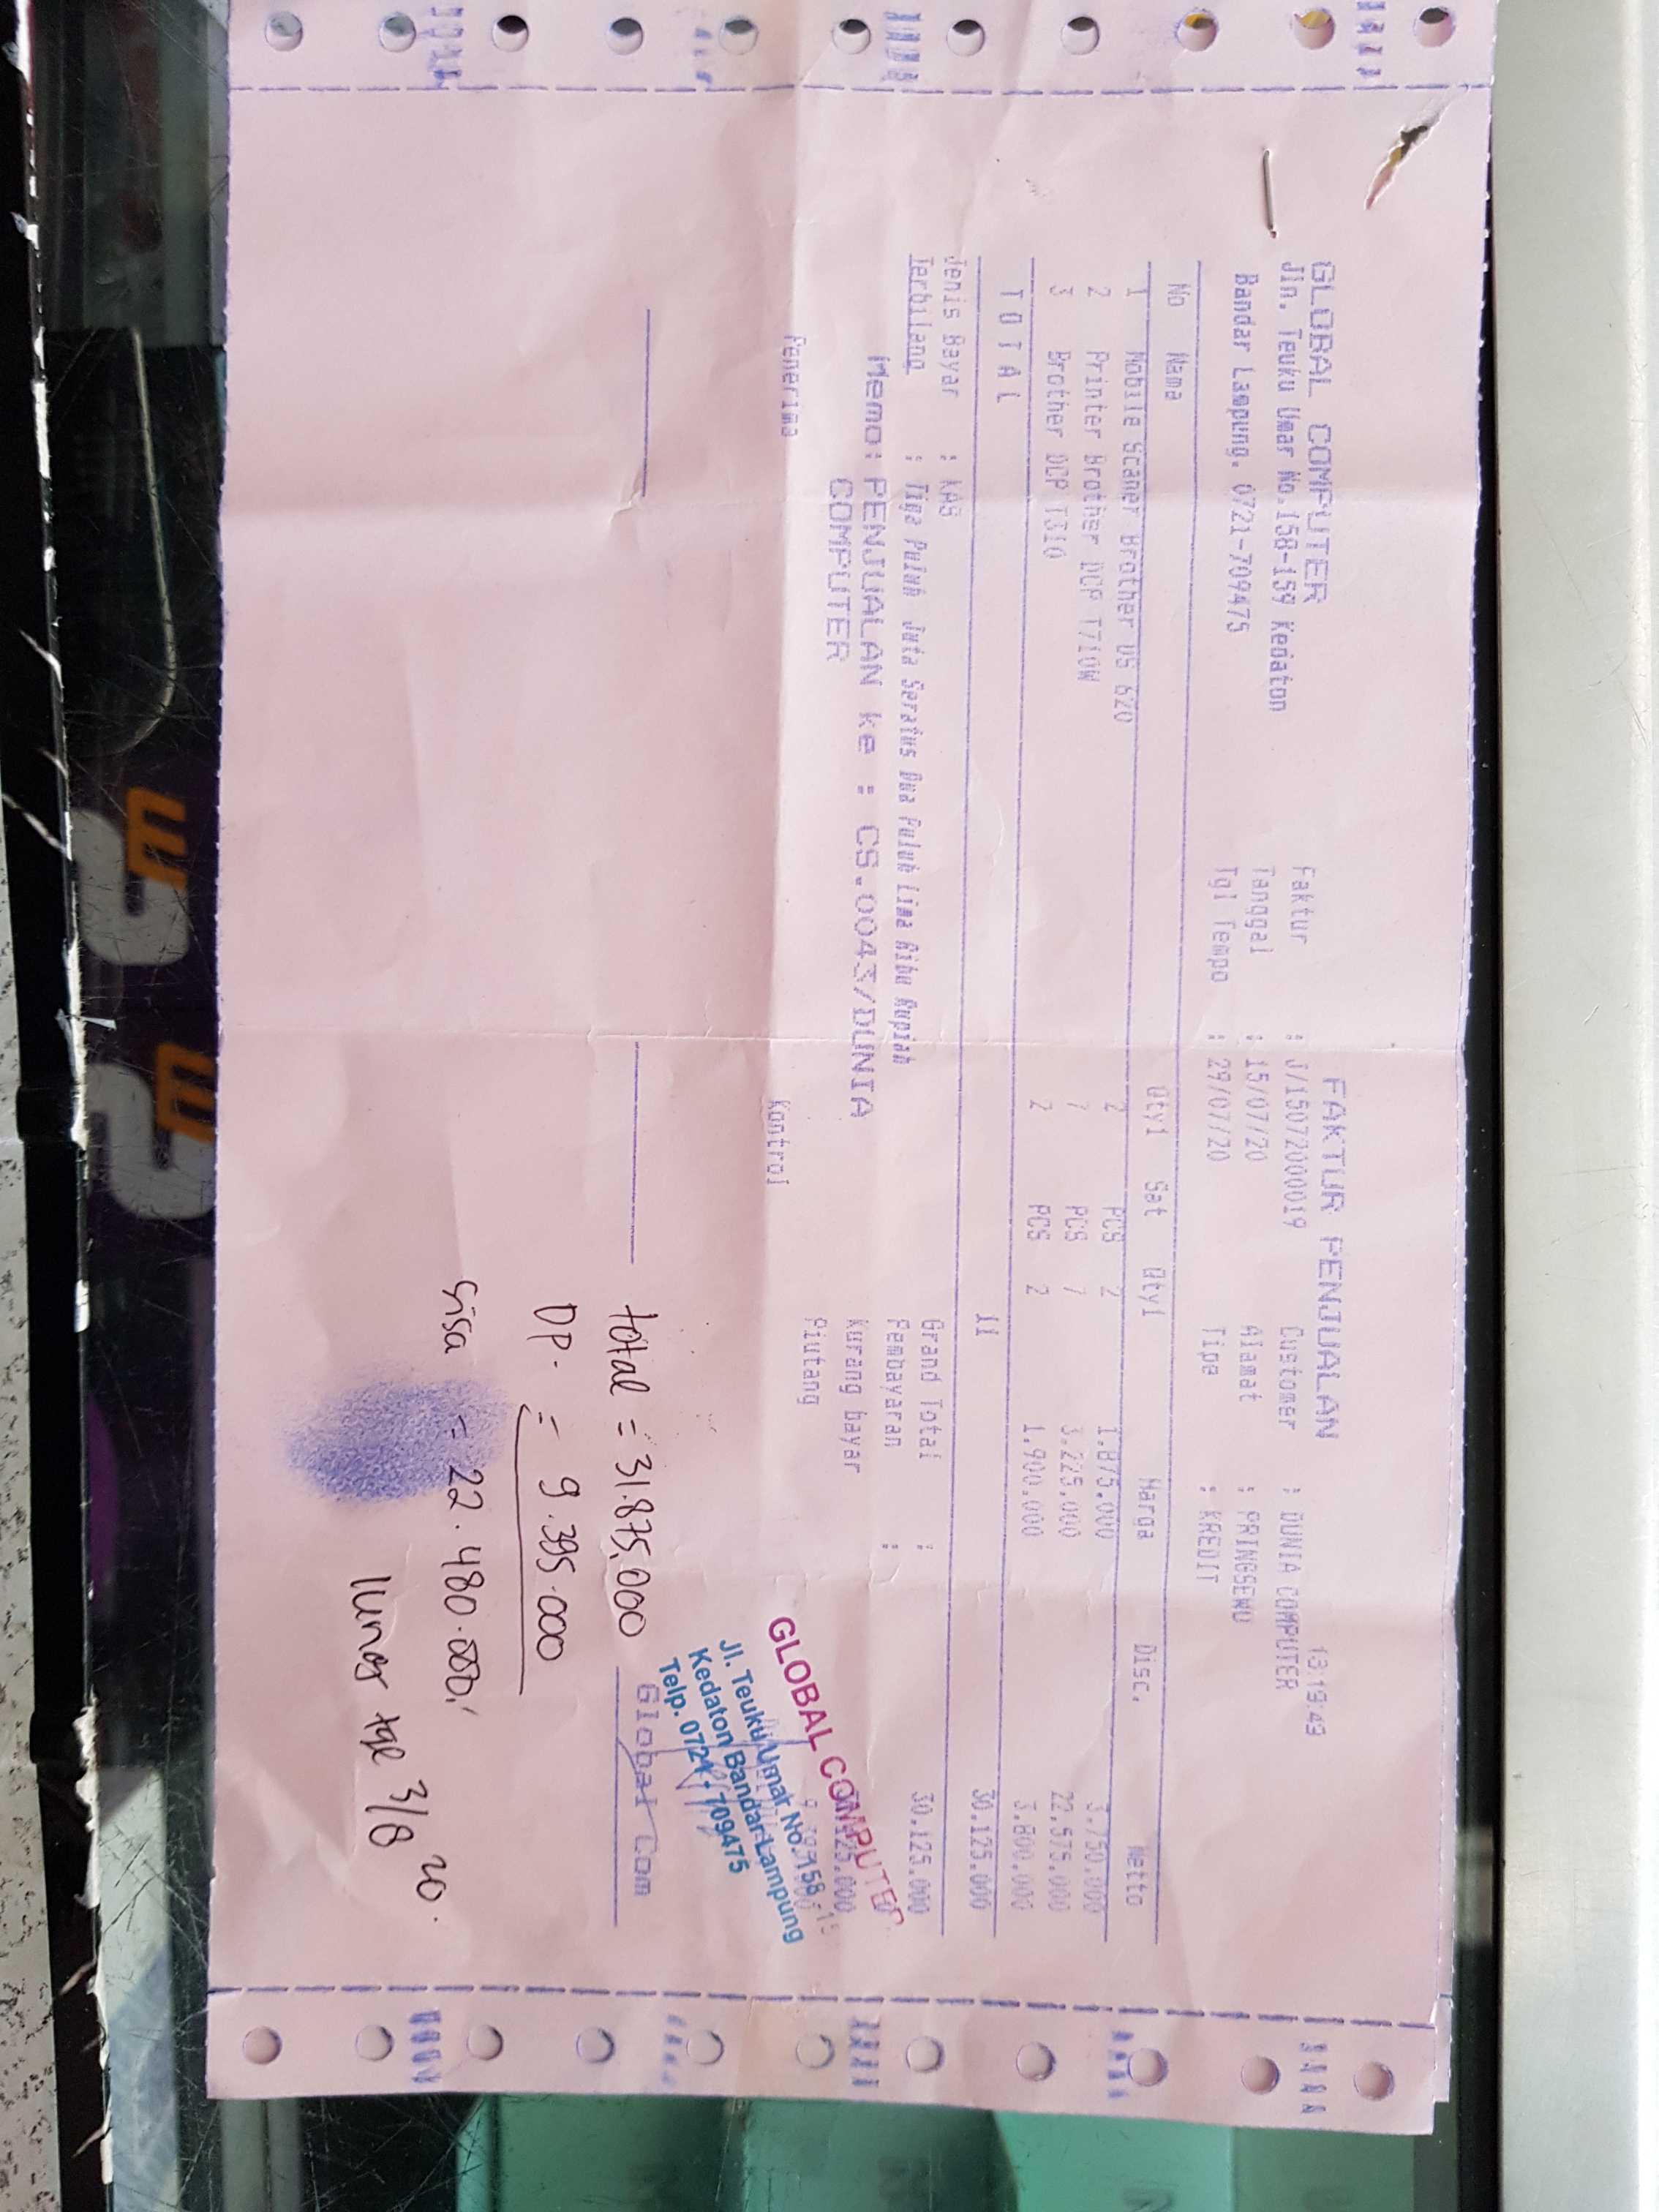 GLOBAL COMPUTER
Jln. Teuku Umar No.158-159 Kedaton
Bandar Lampung. 0721-709475
FAKTUR PENJUALAN
13:19:43
Faktur : J/15072000019
Tanggal : 15/07/20
Tgl Tempo : 29/07/20
Customer : DUNIA COMPUTER
Alamat : PRINGSEWU
Tipe : KREDIT
No Nama Qty1 Sat Qty1 Harga Disc. Netto
1 Mobile Scaner Brother DS 620 2 PCS 2 1.875.000 3.750.000
2 Printer Brother DCP T710W 7 PCS 7 3.225.000 22.575.000
3 Brother DCP T310 2 PCS 2 1.900.000 3.800.000
T O T A L 11 30.125.000
Jenis Bayar : KAS
Terbilang : Tiga Puluh Juta Seratus Dua Puluh Lima Ribu Rupiah
Grand Total : 30.125.000
Pembayaran :
Kurang bayar
Piutang
Memo: PENJUALAN ke : CS.0043/DUNIA
COMPUTER
Penerima
Kontrol
GLOBAL COMPUTER
Jl. Teuku Umar No. 158
Kedaton Bandar Lampung
Telp. 0721-709475
Global Com
total = 31.875.000
DP. = 9.395.000
Sisa = 22.480.000,
lunas tgl 3/8 20.